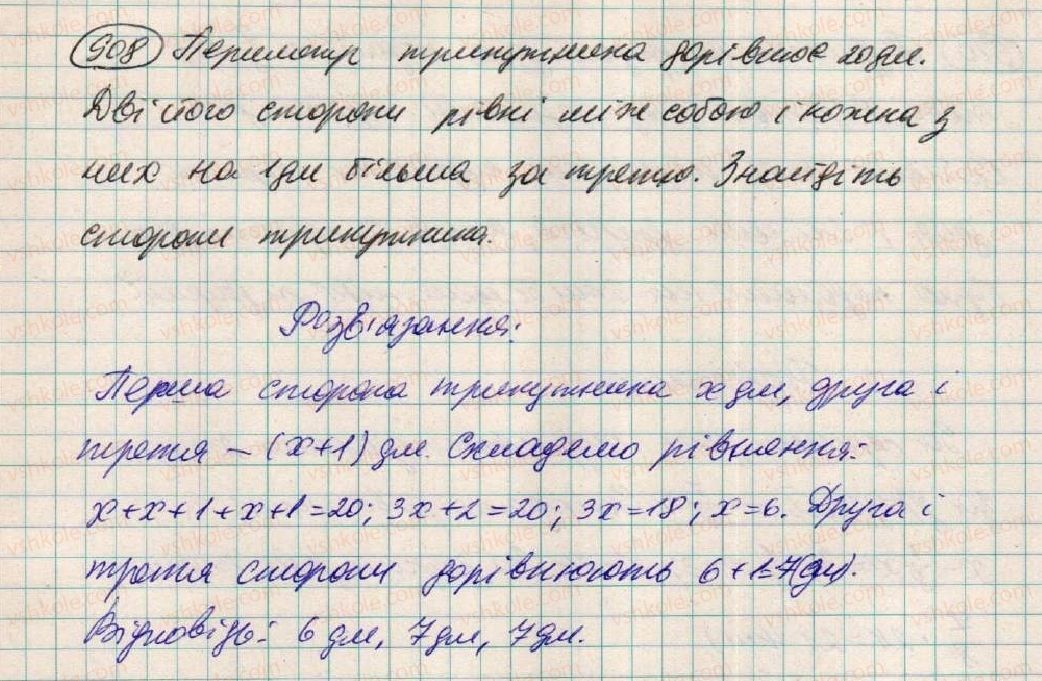 908 Периметр трикутника дорівнює 20 дм.
Дві його сторони рівні між собою і кожна з
них на 1 дм більша за третю. Знайдіть
сторони трикутника.
Розв'язання:
Перша сторона трикутника x дм, друга і
третя – (x+1) дм. Складемо рівняння:
x+x+1+x+1=20; 3x+2=20; 3x=18; x=6. Друга і
третя сторони дорівнюють 6+1=7(дм).
Відповідь: 6 дм, 7 дм, 7 дм.